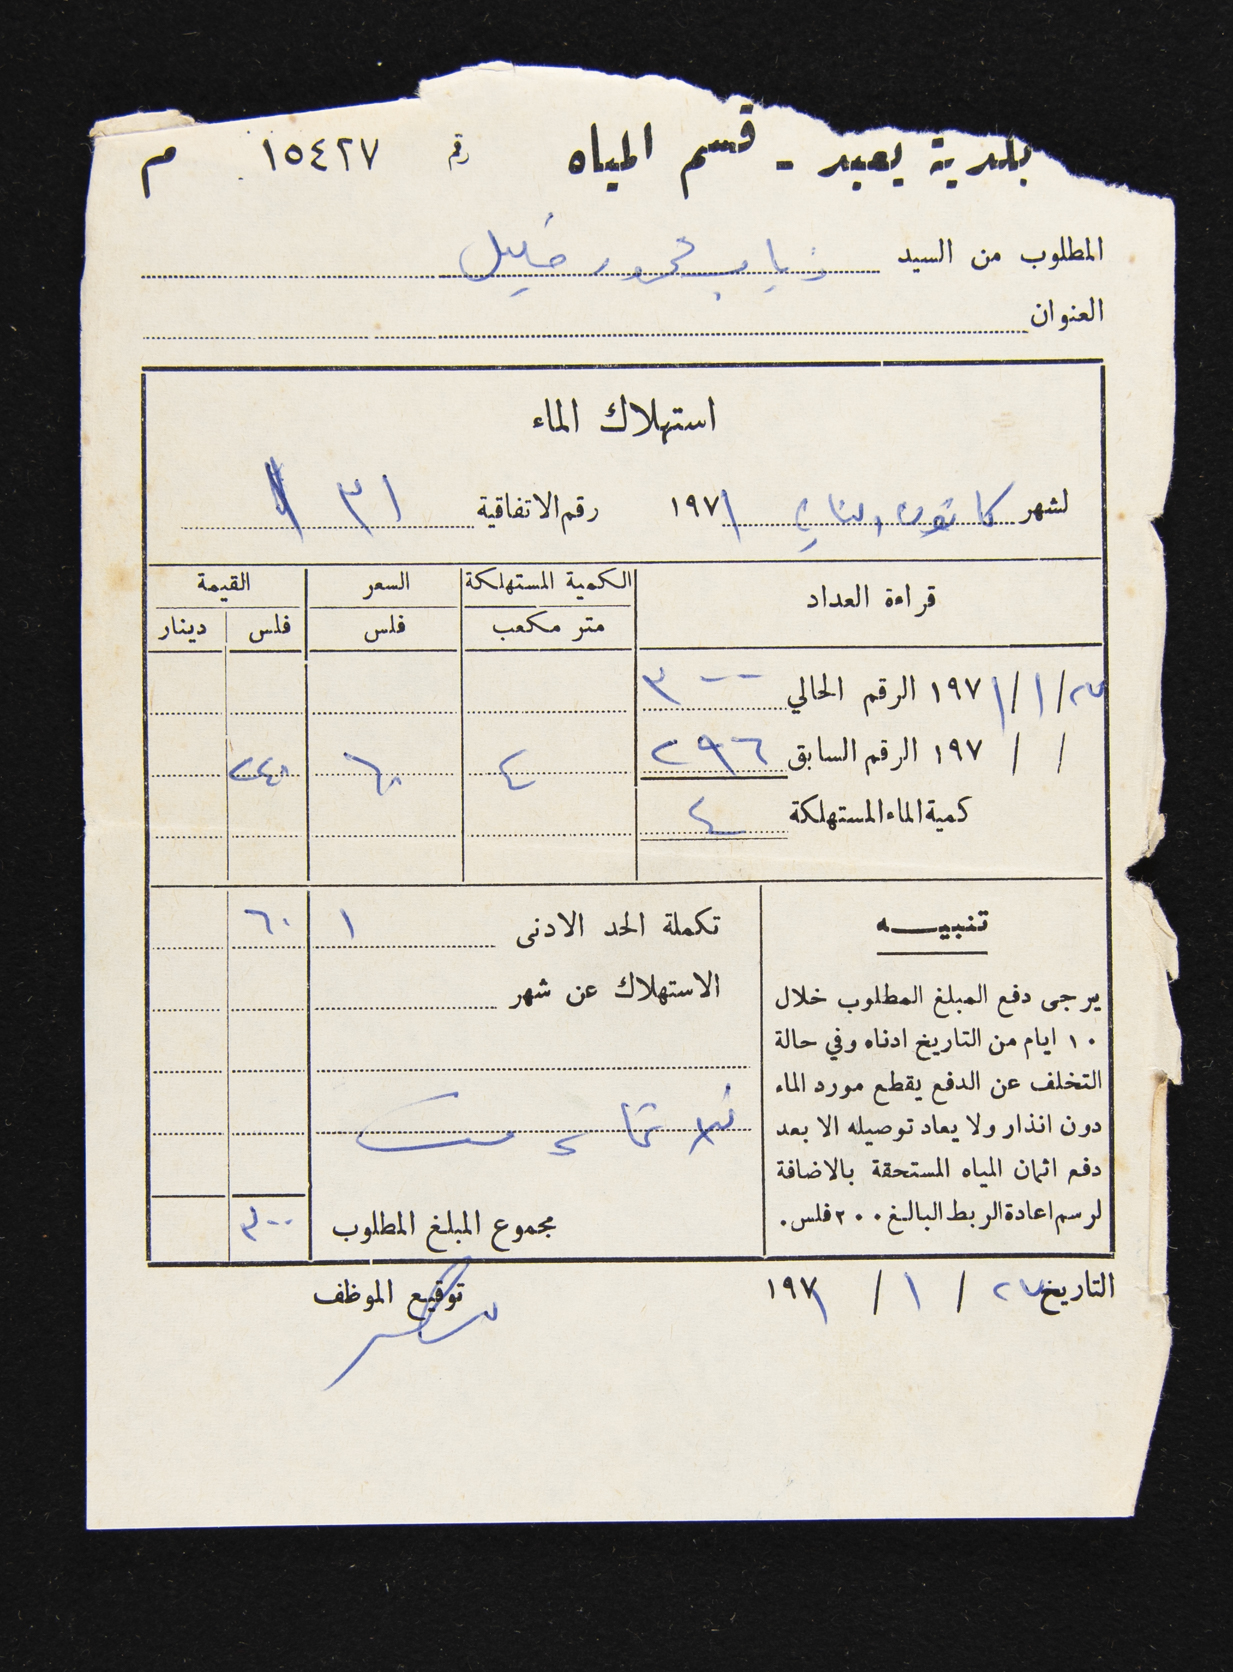 بلدية يعبد - قسم المياه رقم ١٥٤٢٧ م
المطلوب من السيد ذياب محمود خليل
العنوان
استهلاك الماء
لشهر كانون الثاني ١٩٧١ رقم الاتفاقية ٣١
قراءة العداد الكمية المستهلكة السعر القيمة
متر مكعب فلس فلس دينار
٢٧/١/١٩٧١ الرقم الحالي ٣٠٠
/ / ١٩٧ الرقم السابق ٢٩٦ ٤ ٦٠ ٢٤٠
كمية الماء المستهلكة ٤
تكملة الحد الادنى ١ ٦٠
الاستهلاك عن شهر
ثلاثماية
مجموع المبلغ المطلوب ٣٠٠
تنبيـــه
يرجى دفع المبلغ المطلوب خلال
١٠ ايام من التاريخ ادناه وفي حالة
التخلف عن الدفع يقطع مورد الماء
دون انذار ولا يعاد توصيله الا بعد
دفع اثمان المياه المستحقة بالاضافة
لرسم اعادة الربط البالغ ٢٠٠ فلس.
التاريخ ٢٧ / ١ / ١٩٧١ توقيع الموظف